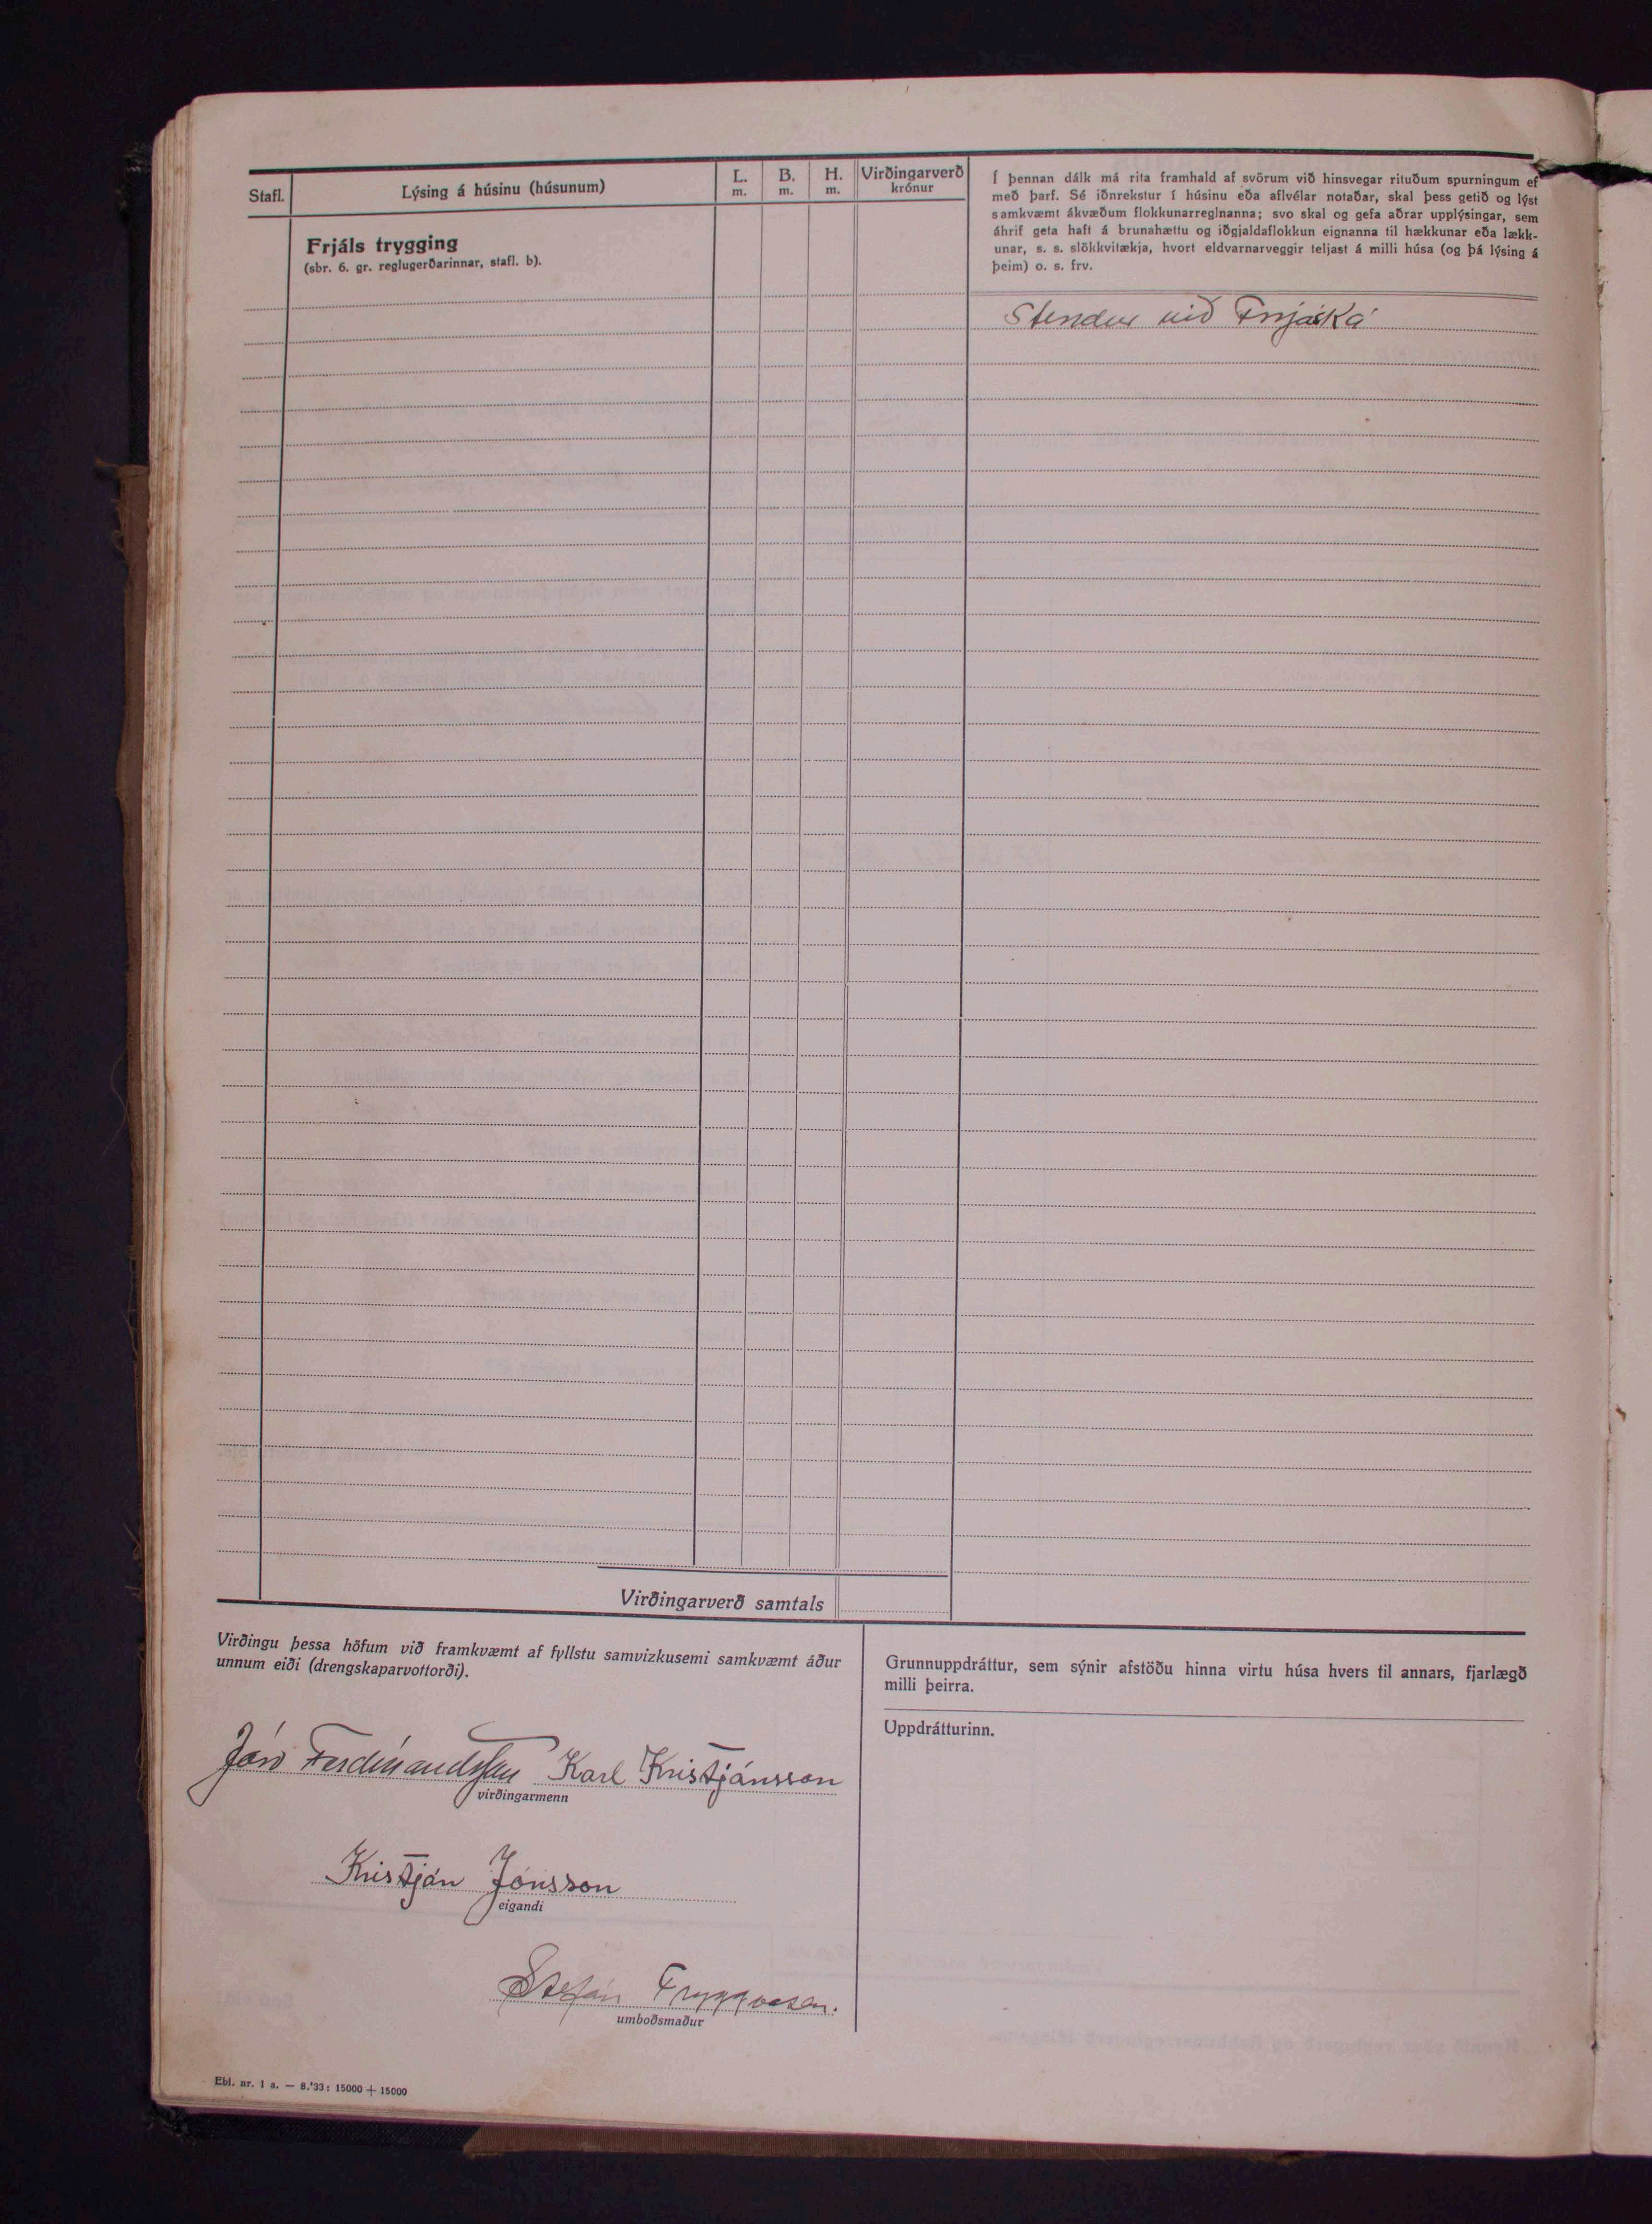 Stafl.
Lýsing á húsinu (húsunum)
L.
m.
B.
m.
H.
m.
Virðingarverð
krónur
Í þennan dálk má rita framhald af svörum við hinsvegar rituðum spurningum ef
með þarf. Sé iðnrekstur í húsinu eða aflvélar notaðar, skal þess getið og lýst
samkvæmt ákvæðum flokkunarreglnanna; svo skal og gefa aðrar upplýsingar, sem
áhrif geta haft á brunahættu og iðgjaldaflokkun eignanna til hækkunar eða lækk-
unar, s. s. slökkvitækja, hvort eldvarnarveggir teljast á milli húsa (og þá lýsing á
þeim) o. s. frv.
Frjáls trygging
(sbr. 6. gr. reglugerðarinnar, stafl. b).
Stendur við Fnjóská
Virðingarverð samtals
Virðingu þessa höfum við framkvæmt af fyllstu samvizkusemi samkvæmt áður
unnum eiði (drengskaparvottorði).
Jón Ferdínandsson Karl Kristjánsson
virðingarmenn
Kristján Jónsson
eigandi
Stefán Tryggvason.
umboðsmaður
Grunnuppdráttur, sem sýnir afstöðu hinna virtu húsa hvers til annars, fjarlægð
milli þeirra.
Uppdrátturinn.
Ebl. nr. 1 a. — 8.'33: 15000 + 15000